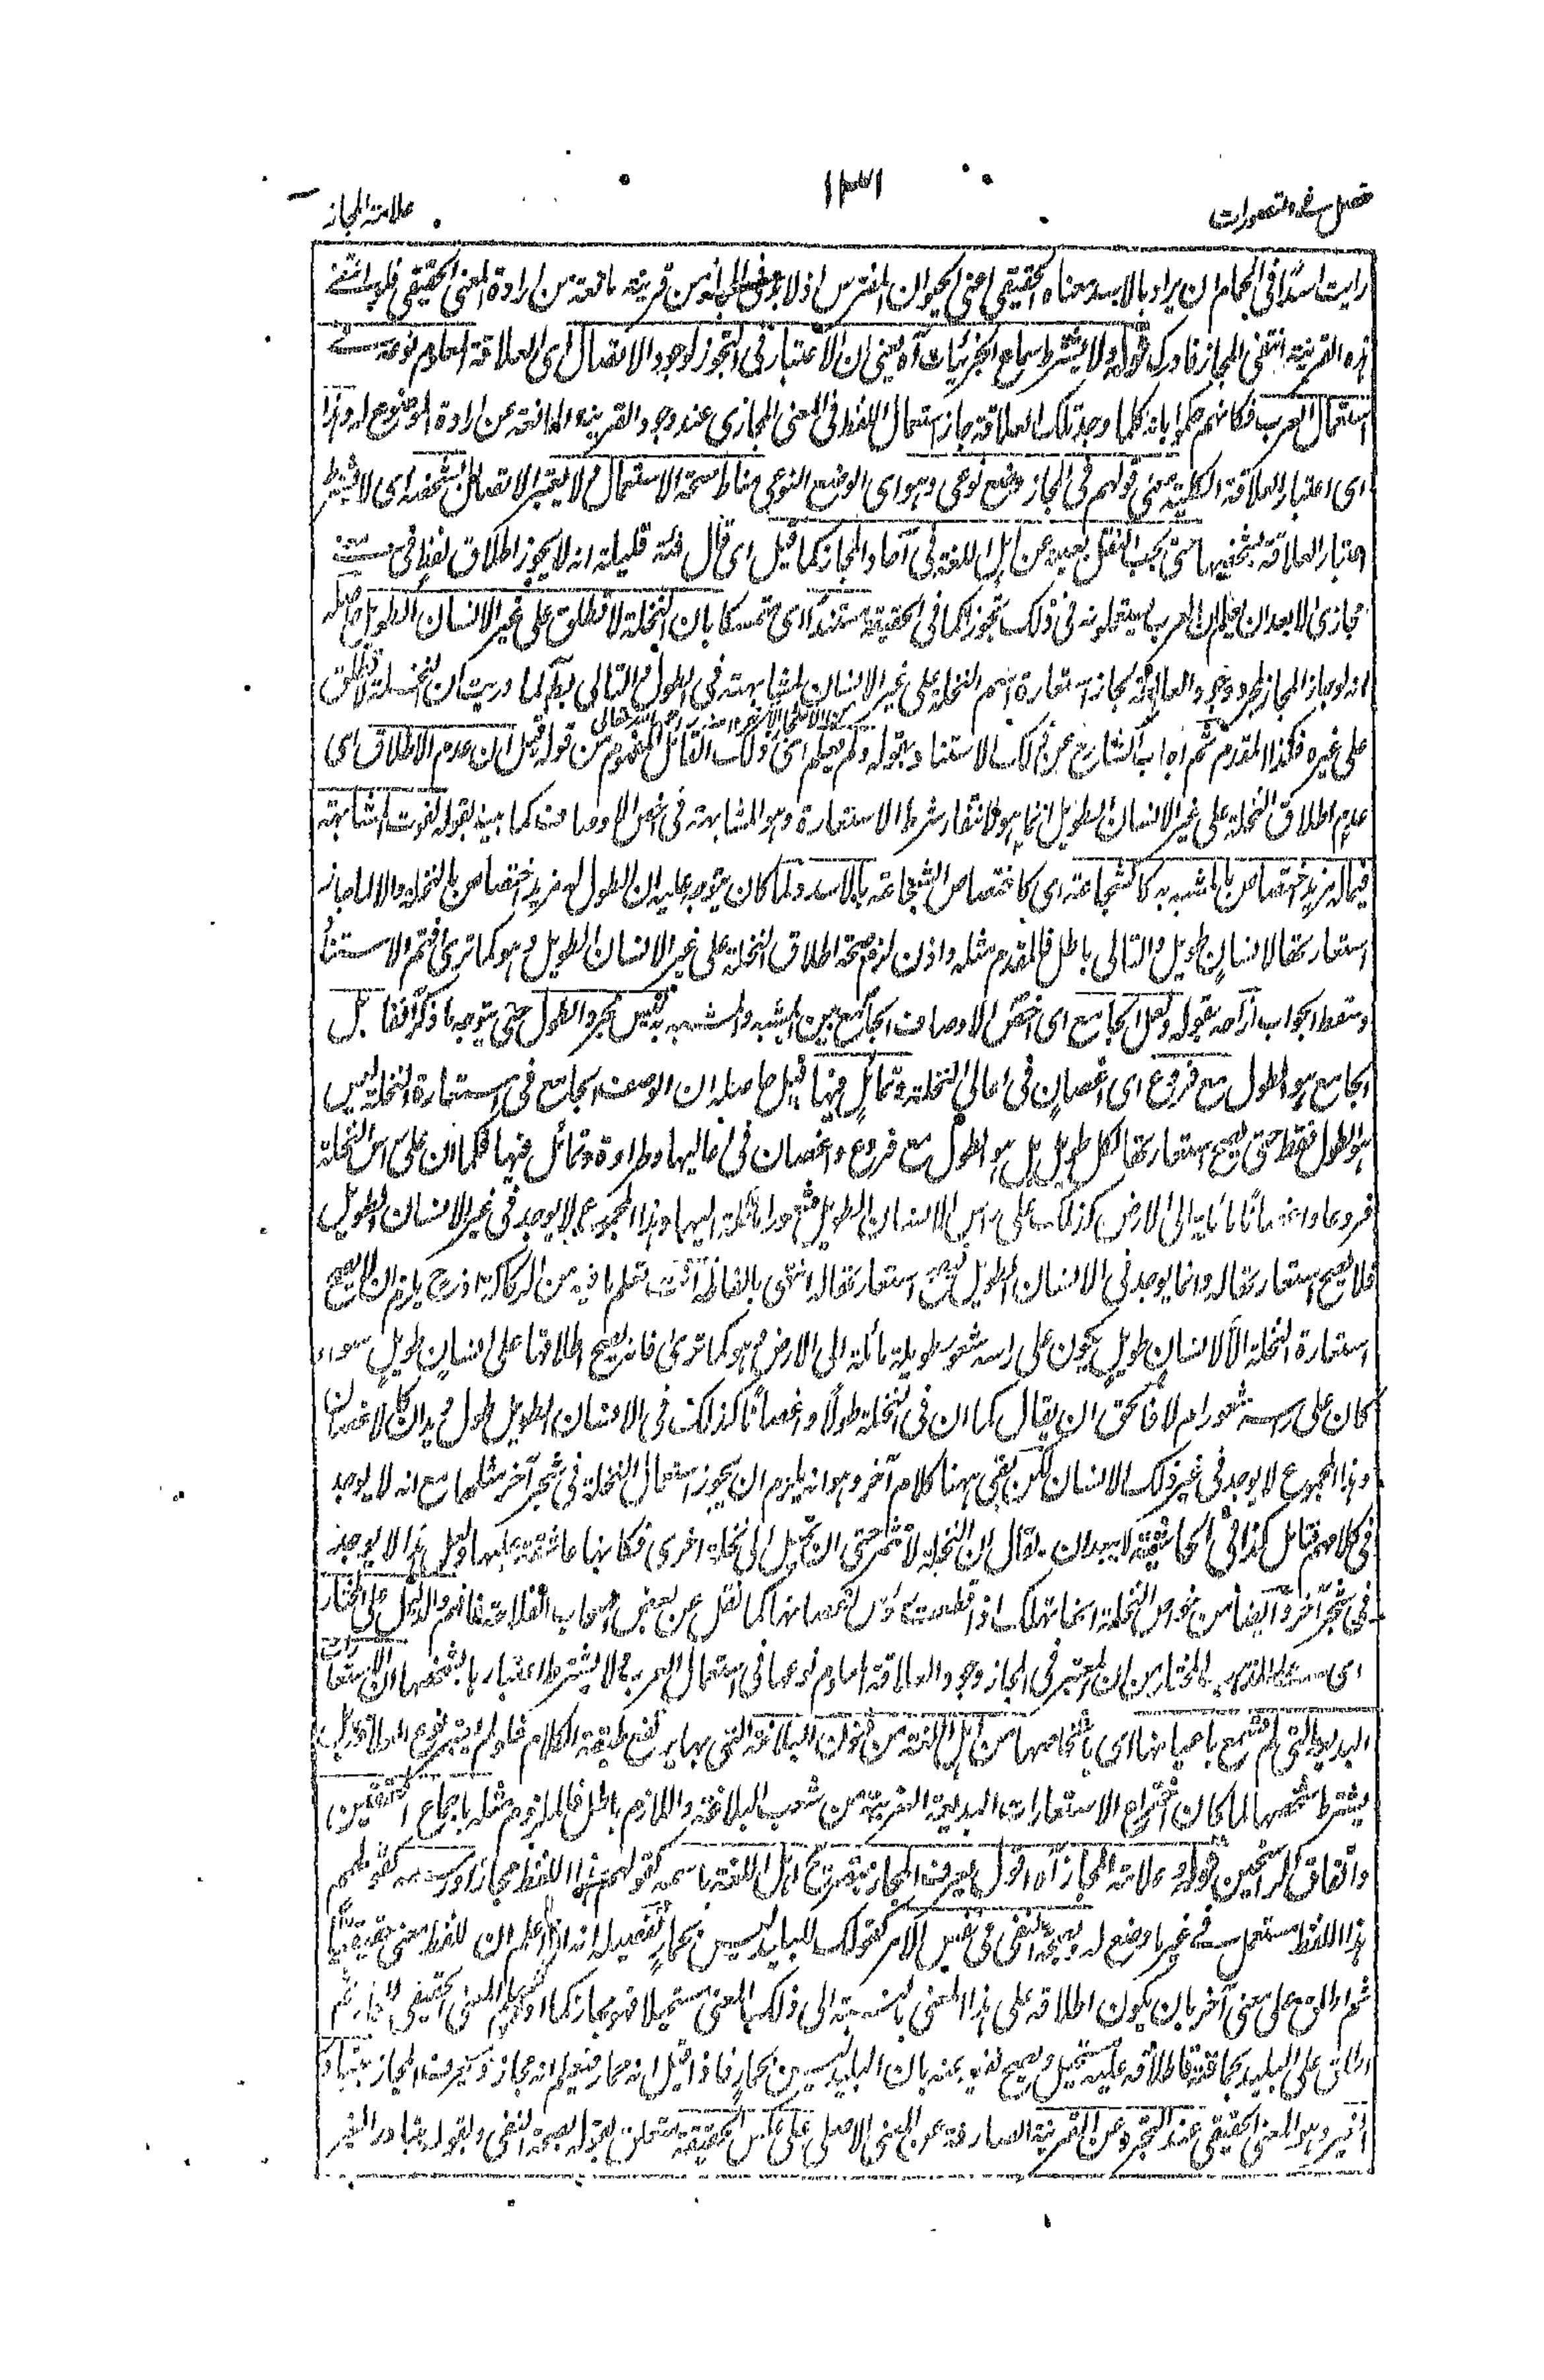 فصل فى التصورات
١٣١
علامة المجاز
رايت اسدًا فى الحمام ان يراد بالاسد معناه الحقيقى اعنى الحيوان المفترس اذ لا بد فى المجاز من قرينة مانعة من ارادة المعنى الحقيقى فلو انتفى
هذه القرينة انتفى المجاز فادرك قوله ولا يشترط سماع الجزئيات آه يعنى ان الاعتبار فى التجوز لوجود الاتصال اى العلاقة المعلوم نوعه فى
استعمال العرب فكانهم حكموا بانه كلما وجد تلك العلاقة جاز استعمال اللفظ فى المعنى المجازى عند وجود القرينة المانعة عن ارادة الموضوع له وهذا
اى اعتبار العلاقة الكلية معنى قولهم فى المجاز وضع نوعى وهو اى الوضع النوعى مناط صحة الاستعمال ولا يعتبر الاتصال بشخصه اى لا يشترط
اعتبار العلاقة بشخصها حتى يجب النقل بعينه عن اهل اللغة فى آحاد المجاز كما قيل اى قال فئة قليلة انه لا يجوز اطلاق لفظ فى معنى
مجازى الا بعد ان يعلم ان العرب يستعملونه فى ذلك تجوزا كما فى الحقيقة مستندًا اى متمسكا بان النخلة لا تطلق على غير الانسان الطويل حاصله
انه لو جاز المجاز بمجرد وجود العلاقة لجاز استعارة اسم النخلة على غير الانسان لمشابهته فى الطول والتالى بط لما دريت ان النخلة لا تطلق
على غيره فكذا المقدم ثم اجاب الشارع عن ذلك الاستناد بقوله ولم يعلم اى ذلك القائل المفهوم من قوله قيل ان عدم الاطلاق اى
عدم اطلاق النخلة على غير الانسان الطويل انما هو لانتفاء شرط الاستعارة وهو المشابهة فى اخص الاوصاف كما بينه بقوله لفوت المشابهة
فيما له مزيد اختصاص بالمشبه به كالشجاعة اى كاختصاص الشجاعة بالاسد ولما كان يتوجه عليه ان الطول له مزيد اختصاص بالنخلة والا لما جاز
استعارتها لانسان طويل والتالى باطل فالمقدم مثله واذن لزم صحة اطلاق النخلة على غير الانسان الطويل وهو كما ترى فتم الاستناد
وسقط الجواب ازاحه بقوله ولعل الجامع اى اخص الاوصاف الجامع بين المشبه والمشبه به ليس مجرد الطول حتى يتوجه ما ذكر آنفا بل
الجامع هو الطول مع فروع اى اغصان فى اعالى النخلة وتمايل فيها قيل حاصله ان الوصف الجامع فى استعارة النخلة ليس
هو الطول فقط حتى يصح استعارتها لكل طويل بل هو الطول مع فروع واغصان فى اعاليها وطراوة وتمائل فيها فكما ان على راس النخلة
فروعا واغصانًا مائلة الى الارض كذلك على راس الانسان الطويل شعورا مائلة اليها وهذا المجموع لا يوجد فى غير الانسان الطويل
فلا يصح استعارتها له وانما يوجد فى الانسان الطويل فيصح استعارتها له انتهى بالفاظه انت تعلم ما فيه من الركاكة اذ ح يلزم ان لا يصح
استعارة النخلة الا لانسان طويل يكون على راسه شعور طويلة مائلة الى الارض وهو كما ترى فانه يصح اطلاقها على انسان طويل سواء
كان على راسه شعور ام لا فالحق ان يقال كما ان فى النخلة طولًا واغصانًا كذلك فى الانسان الطويل طول ويدان كالاغصان
وهذا المجموع لا يوجد فى غير ذلك الانسان لكن بقى ههنا كلام آخر وهو انه يلزم ان يجوز استعمال النخلة فى شجر آخر مثلها مع انه لا يوجد
فى كلامهم فتامل كذا فى الحاشية لا يبعد ان يقال ان النخلة لا تثمر حتى ان تميل الى نخلة اخرى فكانها عاشقة عليها ولعل هذا لا يوجد
فى شجر آخر وايضا من خواص النخلة انها تهلك اذا قطعت رؤس اغصانها كما نقل عن بعض اصحاب الفلاحة فافهم والدليل على المختار
اى على المذهب المختار من ان المعتبر فى المجاز وجود العلاقة المعلوم نوعها فى استعمال العرب ولا يشترط اعتبارها بشخصها ان الاستعارات
البديعة التى لم تسمع باعيانها اى باشخاصها من اهل اللغة من فنون البلاغة التى بها يرتفع طبقة الكلام فلو لم يعتبر نوع العلاقة بل
يشترط شخصها لما كان اختراع الاستعارات البديعة الغريبة من شعب البلاغة واللازم باطل فالملزوم مثله باجماع المتقنين
واتفاق الراسخين قوله وعلامة المجاز آه اقول يعرف المجاز بتصريح اهل اللغة باسمه كقولهم هذا اللفظ مجاز او رسمه كقولهم
هذا اللفظ مستعمل فى غير ما وضع له وبصحة النفى فى نفس الامر كقولك للبليد ليس بحمار تفصيله انه اذا علم ان للفظ معنى حقيقيًا
ثم اطلق على معنى آخر بان يكون اطلاقه على هذا المعنى بالنسبة الى ذلك المعنى مستحيلا فهو مجاز كما اذا علم المعنى الحقيقى للحمار ثم
اطلق على البليد بحماقته فاطلاقه عليه مستحيل ويصح نفيه عنه بان البليد ليس بحمار فاذا قيل انه حمار فيعلم انه مجاز ويعرف المجاز بتبادر
الغير وهو المعنى الحقيقى عند التجرد عن القرينة الصارفة عن المعنى الاصلى على عكس الحقيقة متعلق بقوله بصحة النفى وبقوله بتبادر الغير